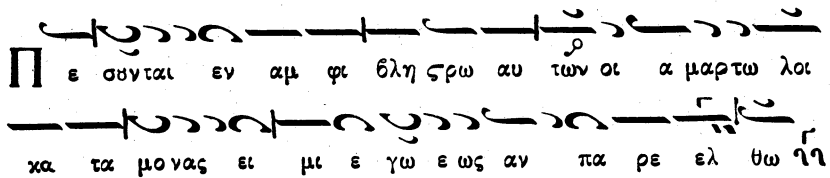 Π ε σουνται εν αμ φι βλη ςρω αυ των οι α μαρτω λοι
κα τα μο νας ει μι ε γω ε ως αν πα ρε ελ θω